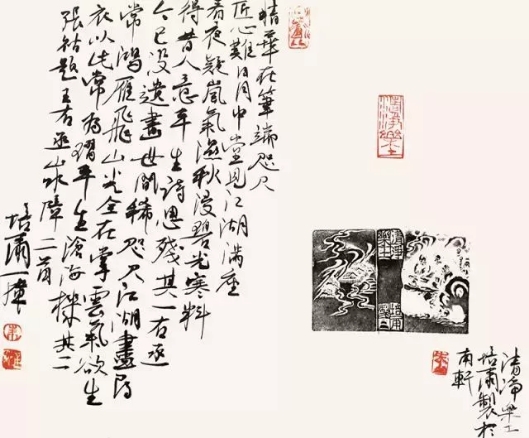 精華在筆端咫尺
匠心難日月中堂見江湖滿座
看夜疑嵐氣濕秋浸碧光寒料
得昔人意平生詩思殘其一右丞
今已沒遺畫世間稀咫尺江湖盡尋
常鴻雁飛山光全在掌雲氣欲生
衣以此常為翫平生滄海機其二
張祜題王右丞山水障二首
培爾一揮
清淨樂土
清淨樂土
培爾製於
南軒